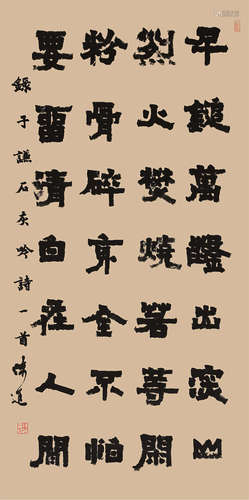 千鎚萬鑿出深山
烈火焚燒若等閑
粉骨碎身全不怕
要留清白在人間
錄于謙石灰吟詩一首